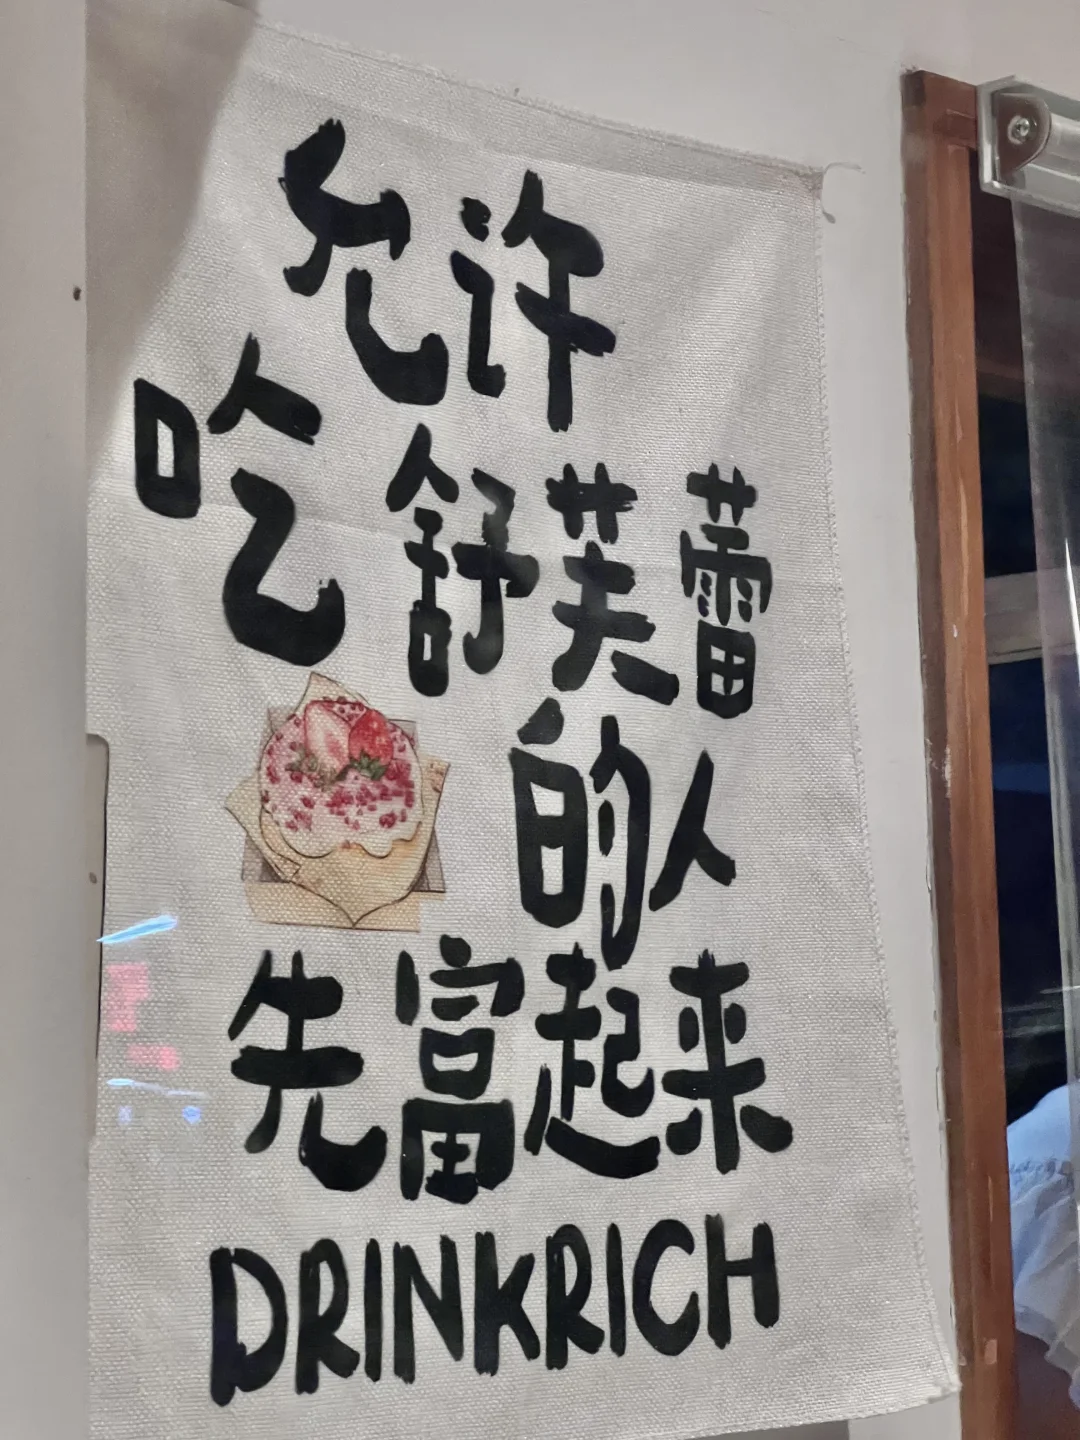 允许
吃舒芙蕾
的人
先富起来
DRINKRICH